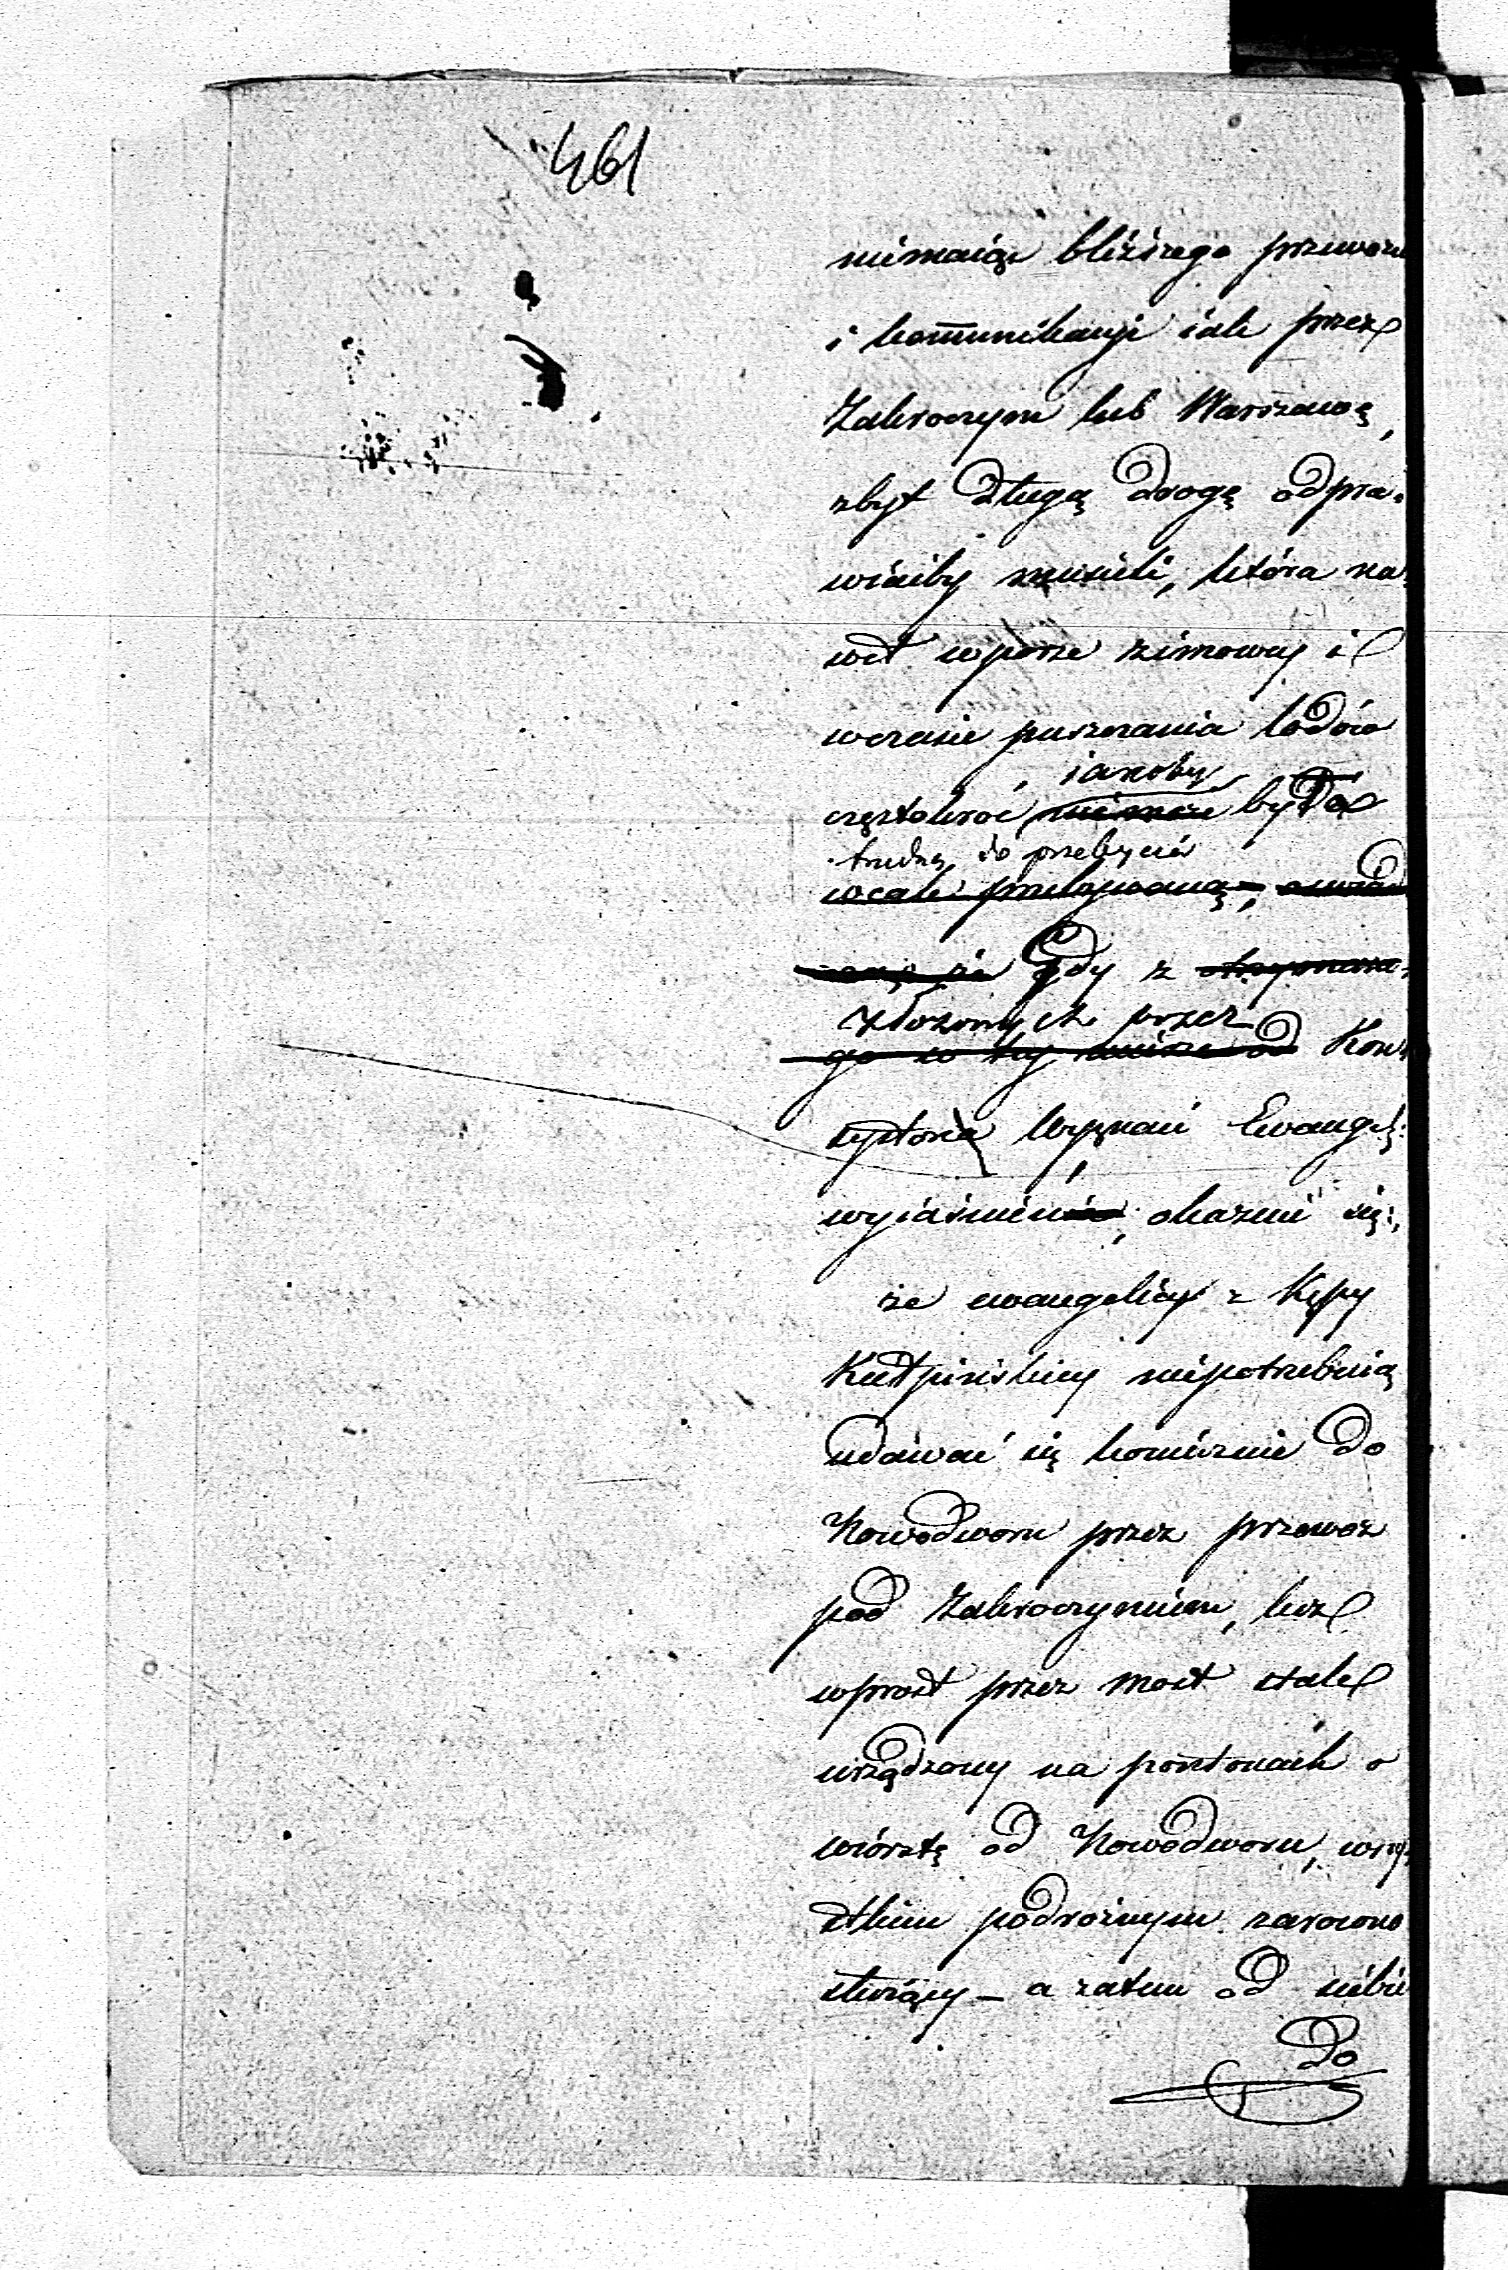 461
niemaiąc bliższego przewozu
i komunikacyi iak przez
Zakroczym lub Warszawę,
zbyt długą drogę odpra-
wiaćby musieli, która na-
wet w porze zimowey i
w czasie puszczania lodów
iakoby
częstokroć nie może była
trudną do przebycia
wcale przebywaną,
że gdy z otrzymane-
złożonych przez
go w tey mierze od Kon-
systorza Wyznań Ewangel:
wyiaśnień, okazuie się:,
że ewangelicy z Kępy
Kiełpińskiey niepotrzebuią
udawać się koniecznie do
Nowodworu przez przewoz
pod Zakroczymiem, lecz
wprost przez most stale
urządzony na pontonach o
wiorstę od Nowodworu, wszy-
stkim podróżnym zarowno
służący – a zatem od siebie
do